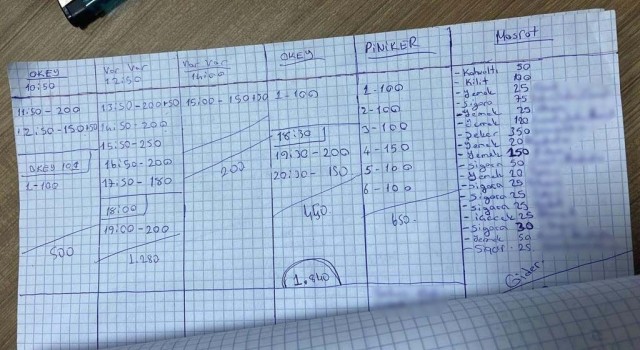 OKEY
10:50
11:50-200
12:50-150+50
OKEY 101
1-100
500
Var Var
12:50
13:50-200+50
14:50-200
15:50-250
16:50-200
17:50-180
18:00
19:00-200
1.280
Var Var
14:00
15:00-150+50
202
OKEY
1-100
18:30
19:30-200
20:30-150
450
1.840
PiNiKER
1-100
2-100
3-100
4-150
5-100
6-100
650.
Masraf
- Kahvaltı 50
- Kilit 100
- Yemek 25
- Sigara 75
- Yemek
- Yemek
- Şeker 350
- Yemek 20
- Yemek 150
- Sigara 50
- Yemek 20
- Sigara 25
- Sigara 25
- Sigara 25
- icecek 25
- Sigara 30
- Yemek 50
- Sigar. 25
Gider.